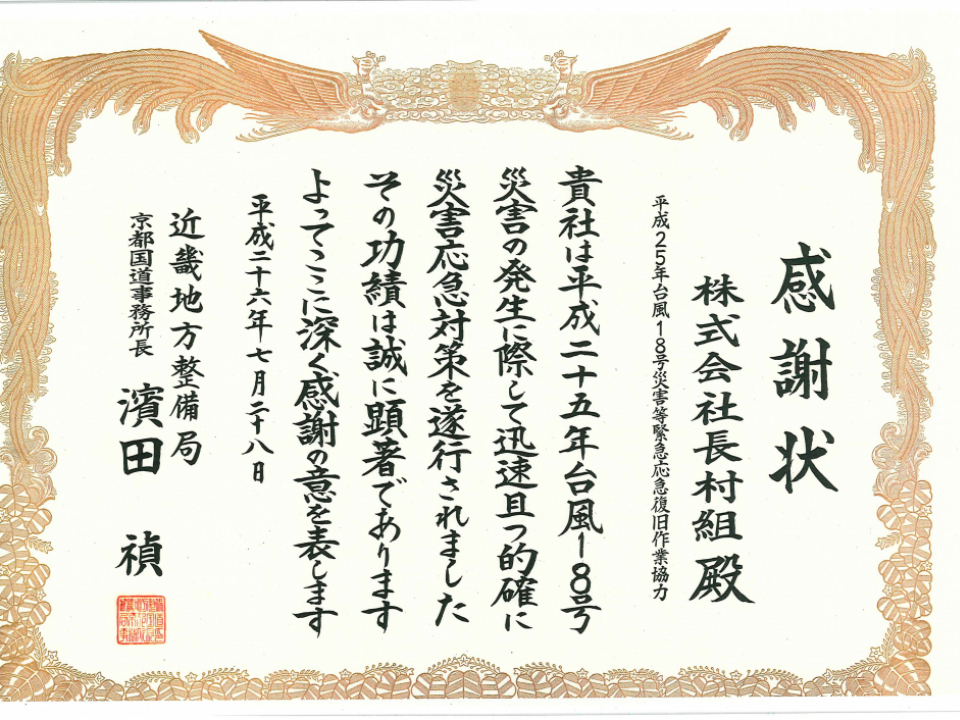 感謝状
株式会社長村組殿
平成25年台風18号災害等緊急応急復旧作業協力
貴社は平成二十五年台風18号
災害の発生に際して迅速且つ的確に
災害応急対策を遂行されました
その功績は誠に顕著であります
よってここに深く感謝の意を表します
平成二十六年七月二十八日
近畿地方整備局
京都国道事務所長 濱田 禎